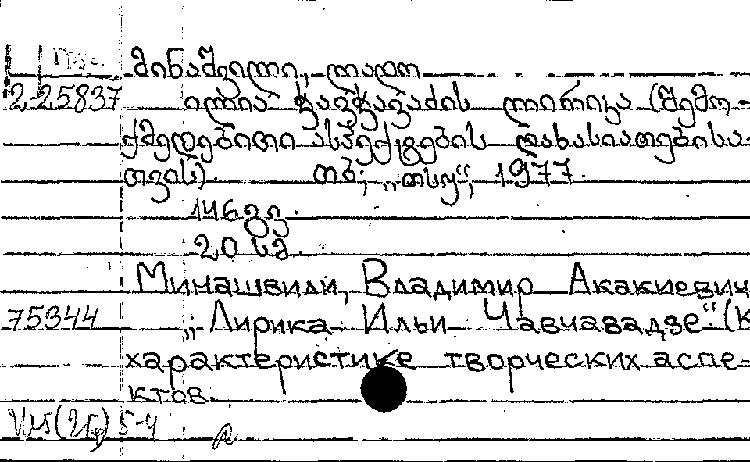 მინაშვილი, ლადო
225837 ილია ჭავჭავაძის ლირიკა (შემო-
ქმედებითი ასპექტების დახასიათებისა-
თვის) თბ., „თსუ“, 1977
146 გვ.
20 სმ.
Минашвили, Владимир Акакиевич
75344 „Лирика Ильи Чавчавадзе“ (к
характеристике творческих аспе-
ктов.
5-4